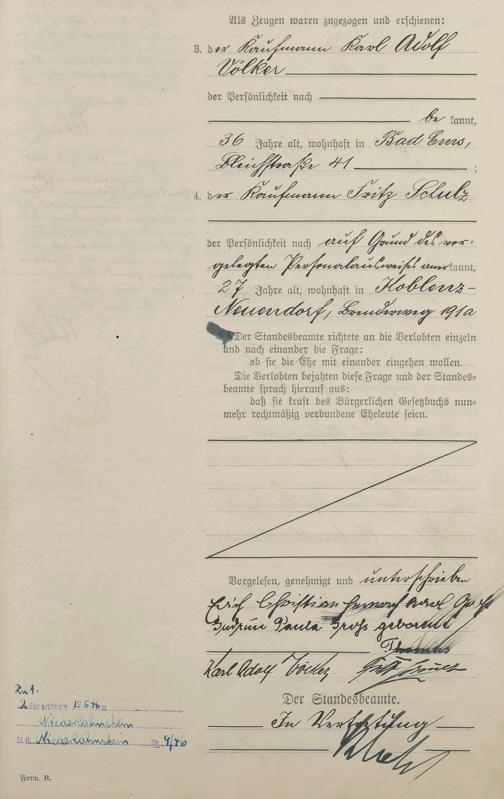 Als Zeugen waren zugezogen und erschienen:
3. der Kaufmann Karl Adolf
Völker
der Persönlichkeit nach
be kannt,
36 Jahre alt, wohnhaft in Bad Ems,
Bleichstraße 41 ;
4. der Kaufmann Fritz Schulz
der Persönlichkeit nach auf Grund des vor-
gelegten Personalausweises anerkannt,
27 Jahre alt, wohnhaft in Koblenz-
Neuendorf, Brenderweg 191a
Der Standesbeamte richtete an die Verlobten einzeln
und nach einander die Frage:
ob sie die Ehe mit einander eingehen wollen.
Die Verlobten bejahten diese Frage und der Standes-
beamte sprach hierauf aus:
daß sie kraft des Bürgerlichen Gesetzbuchs nun-
mehr rechtmäßig verbundene Eheleute seien.
Vorgelesen, genehmigt und unterschrieben
Erich Christian Karl
Paula Groß geborene
Karl Adolf Völker
Der Standesbeamte.
In Vertretung
Zu 1.
am 15.5.
Niederlahnstein
St.R. Niederlahnstein Nr. 4/46
Form. B.